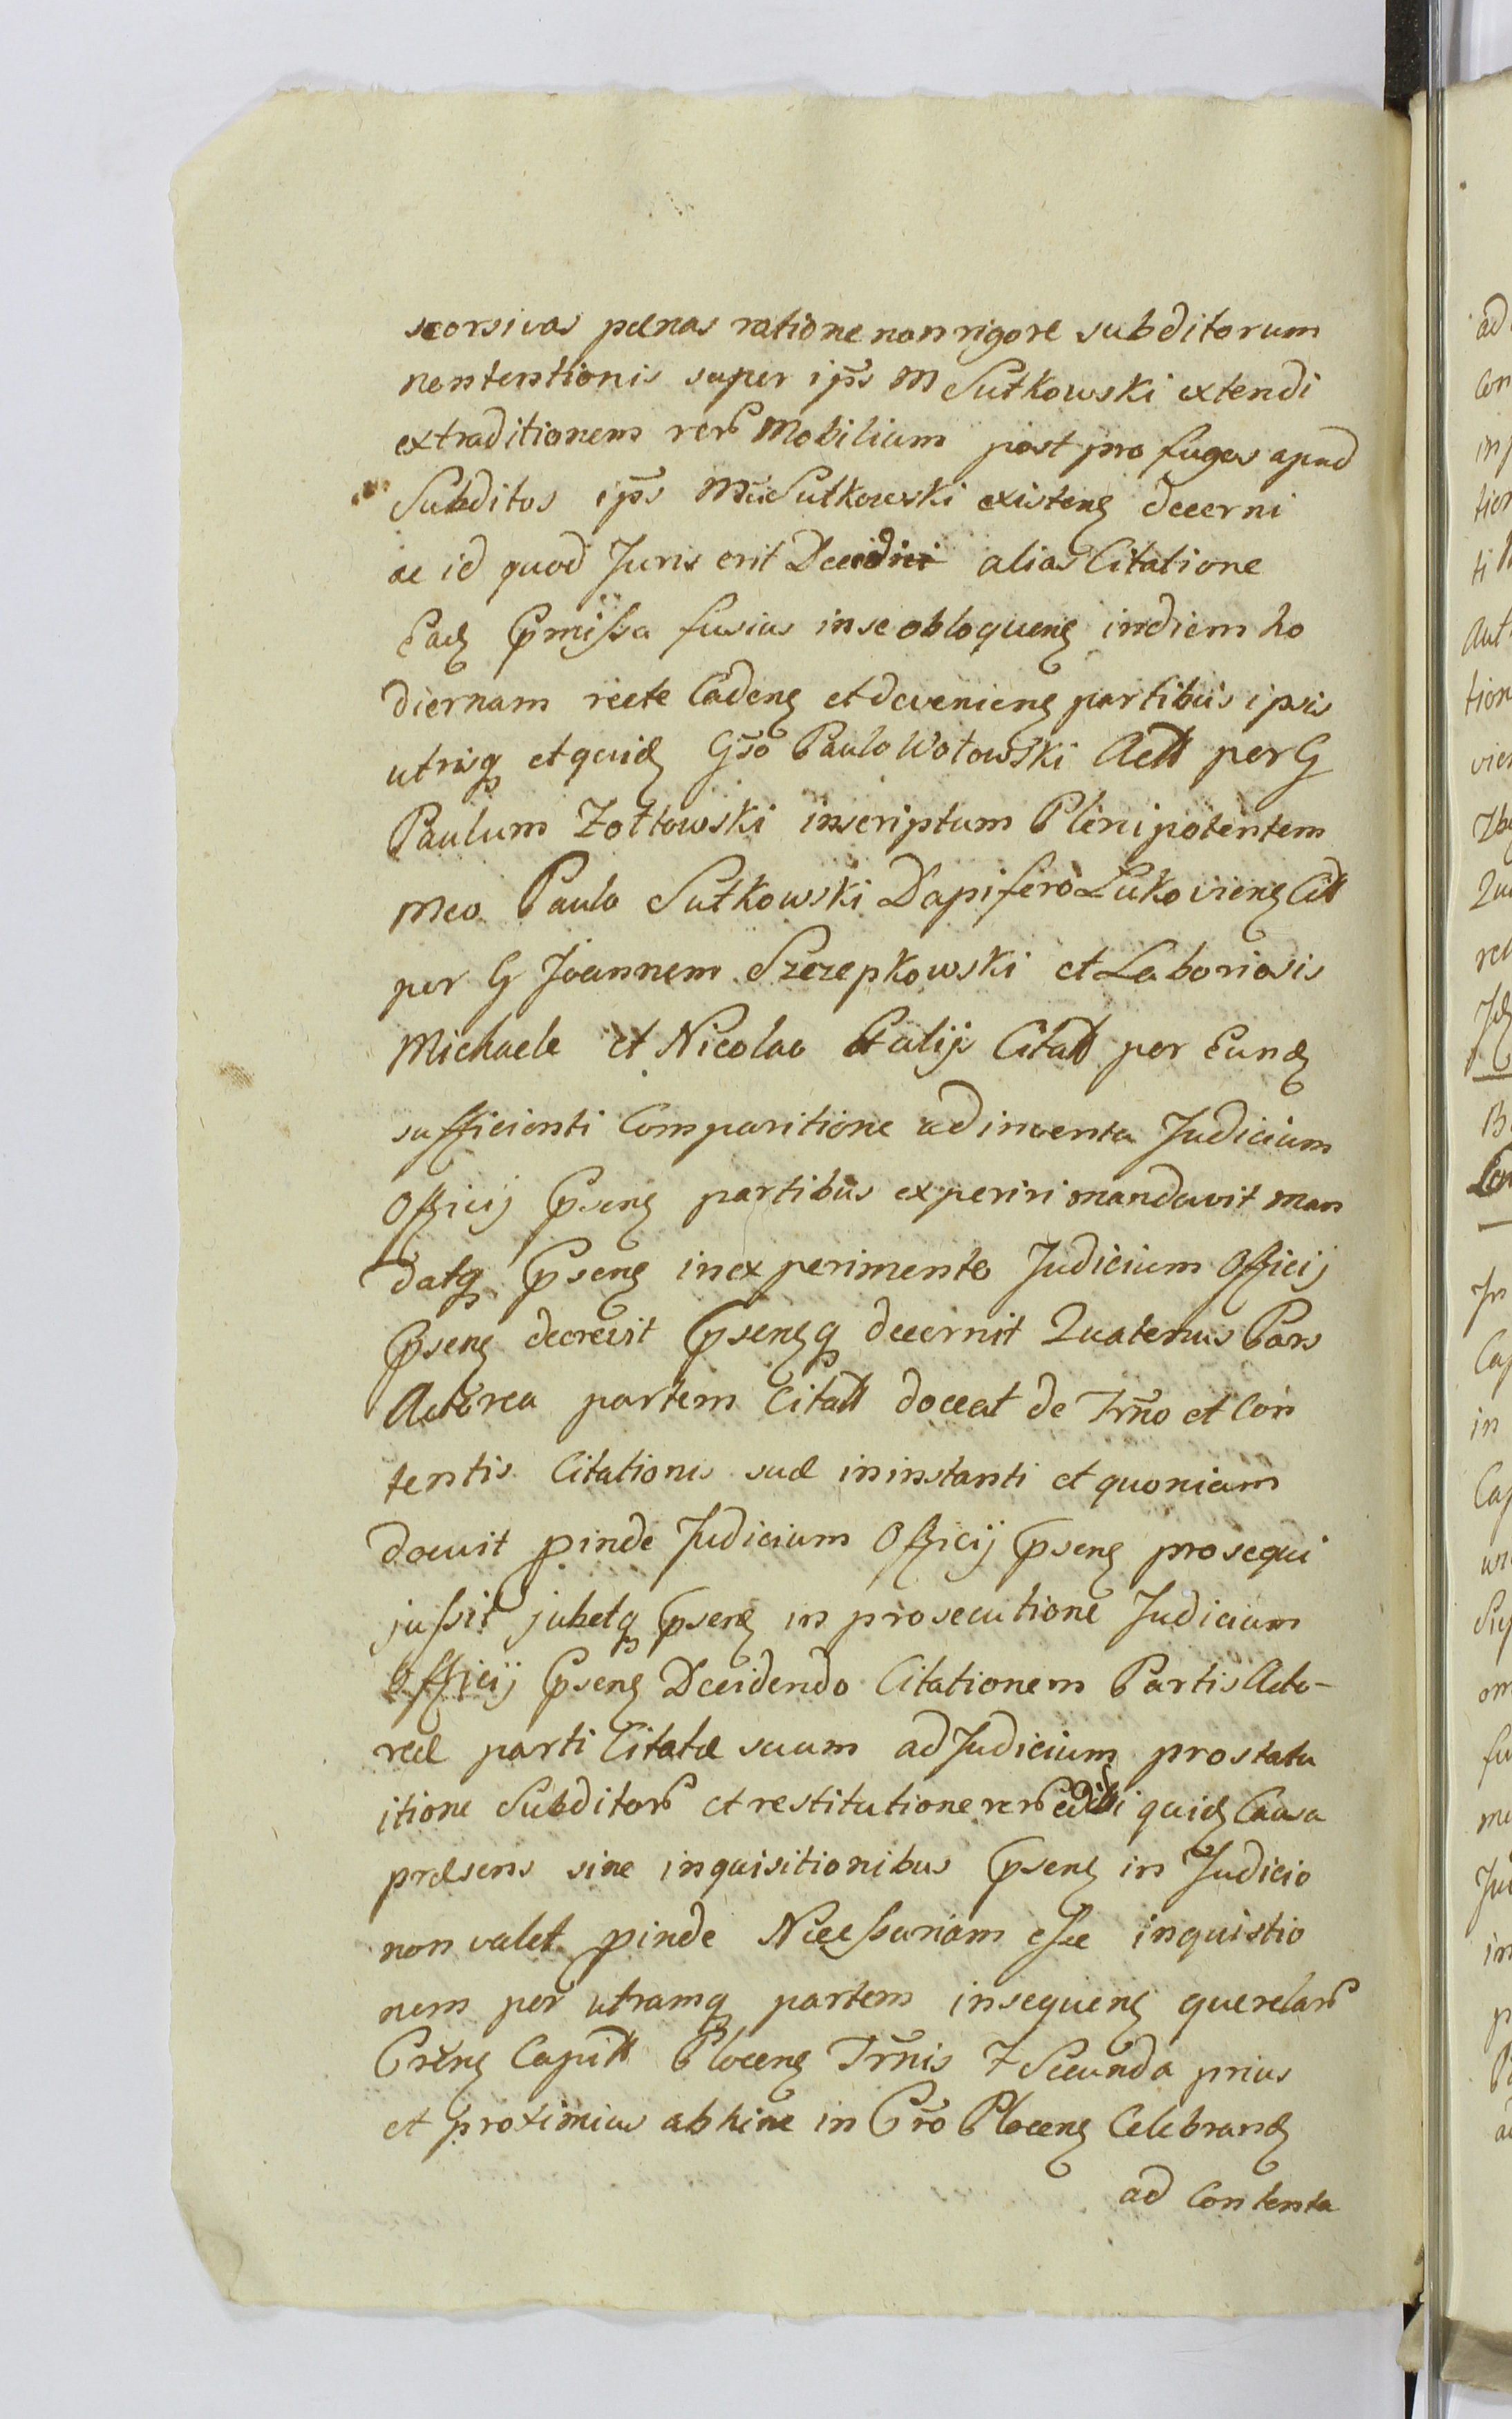 seorsivas pænas ratione non rigore subditorum
nententionis super ip̃s M Sutkowski extendi
extraditionem rerũ Mobilium post profugos apud
Subditos ip̃s Mci Sutkowski existenꝫ decerni
ac id quod Juris erit Decidi alias Citatione
Eadꝫ Pmissa fusius in se obloquenꝫ in diem ho
diernam recte Cadenꝫ et devenienꝫ partibus ipsis
utrisqꝫ et quidꝫ Gso Paulo Wołowski Actt per G
Paulum Żołtowski inscriptum Plenipotentem
Mco Paulo Sutkowski Dapifero Lukovienꝫ Citt
per G Joannem Szczepkowski et Laboriosis
Michaele et Nicolao Et alijs Citatt per Eundꝫ
sufficienti Comparitione adinventa Judicium
Officij Psenꝫ partibus experiri mandavit man
datqꝫ Psenꝫ in experimento Judicium Officij
Psenꝫ decrevit Psenꝫqꝫ decernit Quatenus Pars
Actorea partem Citatt doceat de Trno et Con
tentis Citationis suæ in instanti et quoniam
docuit pinde Judicium Officij Psenꝫ prosequi
jussit jubetqꝫ Psenꝫ in prosecutione Judicium
Officij Psenꝫ Decidendo Citationem Partis Acto-
reæ parti Citatæ suum ad Judicium pro statu
itione Subditorũ et restitutione rerũ quidꝫ Causa
præsens sine inquisitionibus Psenꝫ in Judicio
non valet pinde Necessariam esse inquistio
nem per utramqꝫ partem insequenꝫ querelarũ
Crenꝫ Capitt Plocenꝫ Trnis 7 Secunda prius
et proximius abhinc in Cro Plocenꝫ Celebrandꝫ
ad Contenta